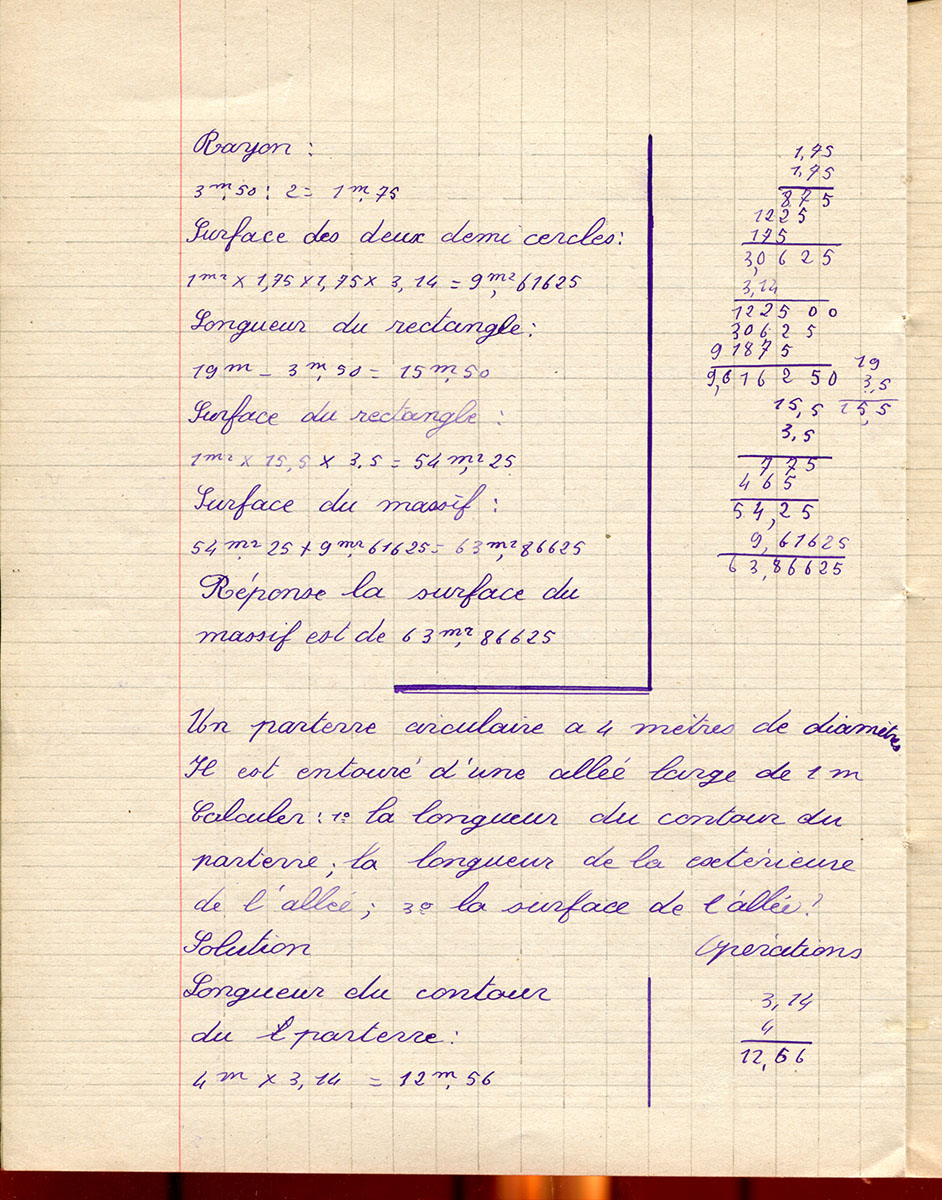 Rayon :
3m,50 : 2 = 1m,75
Surface des deux demi cercles :
1m² x 1,75 x 1,75 x 3,14 = 9m²,61625
Longueur du rectangle :
19m - 3m,50 = 15m,50
Surface du rectangle :
1m² x 15,5 x 3,5 = 54m²,25
Surface du massif :
54m²,25 + 9m²,61625 = 63m²,86625
Réponse la surface du
massif est de 63m²,86625
1,75
1,75
875
1225
175
3,0625
3,14
122500
30625
91875
9,616250
19
3,5
15,5
15,5
3,5
775
465
54,25
9,61625
63,86625
Un parterre circulaire a 4 mètres de diamètres
Il est entouré d'une alleé large de 1m
Calculer : 1º la longueur du contour du
parterre ; la longueur de la extérieure
de l'alleé ; 3º la surface de l'alleé ?
Solution
Opérations
Longueur du contour
du l parterre :
4m x 3,14 = 12m,56
3,14
4
12,56